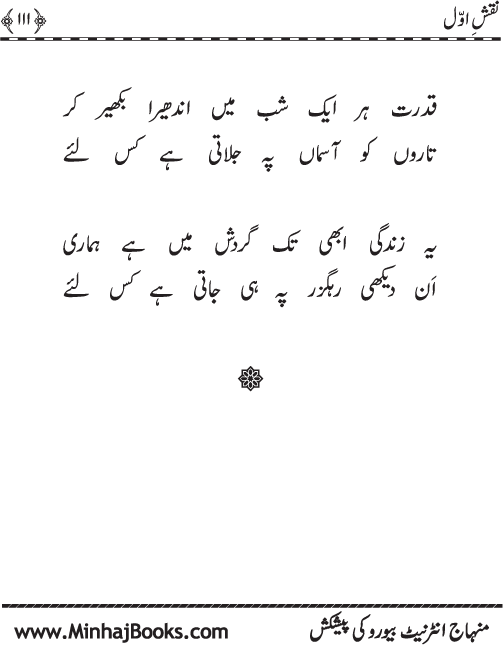 نقشِ اوّل
﴿۱۱۱﴾
قدرت ہر ایک شب میں اندھیرا بکھیر کر
تاروں کو آسماں پہ جلاتی ہے کس لئے
یہ زندگی ابھی تک گردش میں ہے ہماری
اَن دیکھی رہگزر پہ ہی جاتی ہے کس لئے
منہاج انٹرنیٹ بیورو کی پیشکش
www.MinhajBooks.com